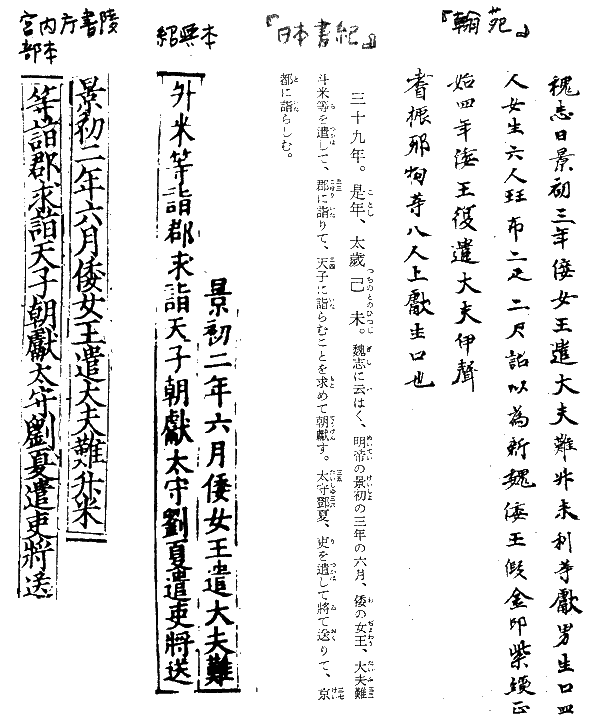 『翰苑』
槐志曰景初三年倭女王遣大夫難升未利等獻男生口四
人女生六人珽布二疋二尺詔以為新魏倭王假金印紫綬正
始四年倭王復遣大夫伊聲
耆振耶狗等八人上獻生口也
『日本書紀』
三十九年。是年、太歲己未。魏志に云はく、明帝の景初の三年の六月、倭の女王、大夫難
斗米等を遣して、郡に詣りて、天子に詣らむことを求めて朝獻す。太守鄧夏、吏を遣して將て送りて、京
都に詣らしむ。
紹興本
景初二年六月倭女王遣大夫難
升米等詣郡求詣天子朝獻太守劉夏遣吏將送
宮内庁書陵
部本
景初二年六月倭女王遣大夫難升米
等詣郡求詣天子朝獻太守劉夏遣吏將送